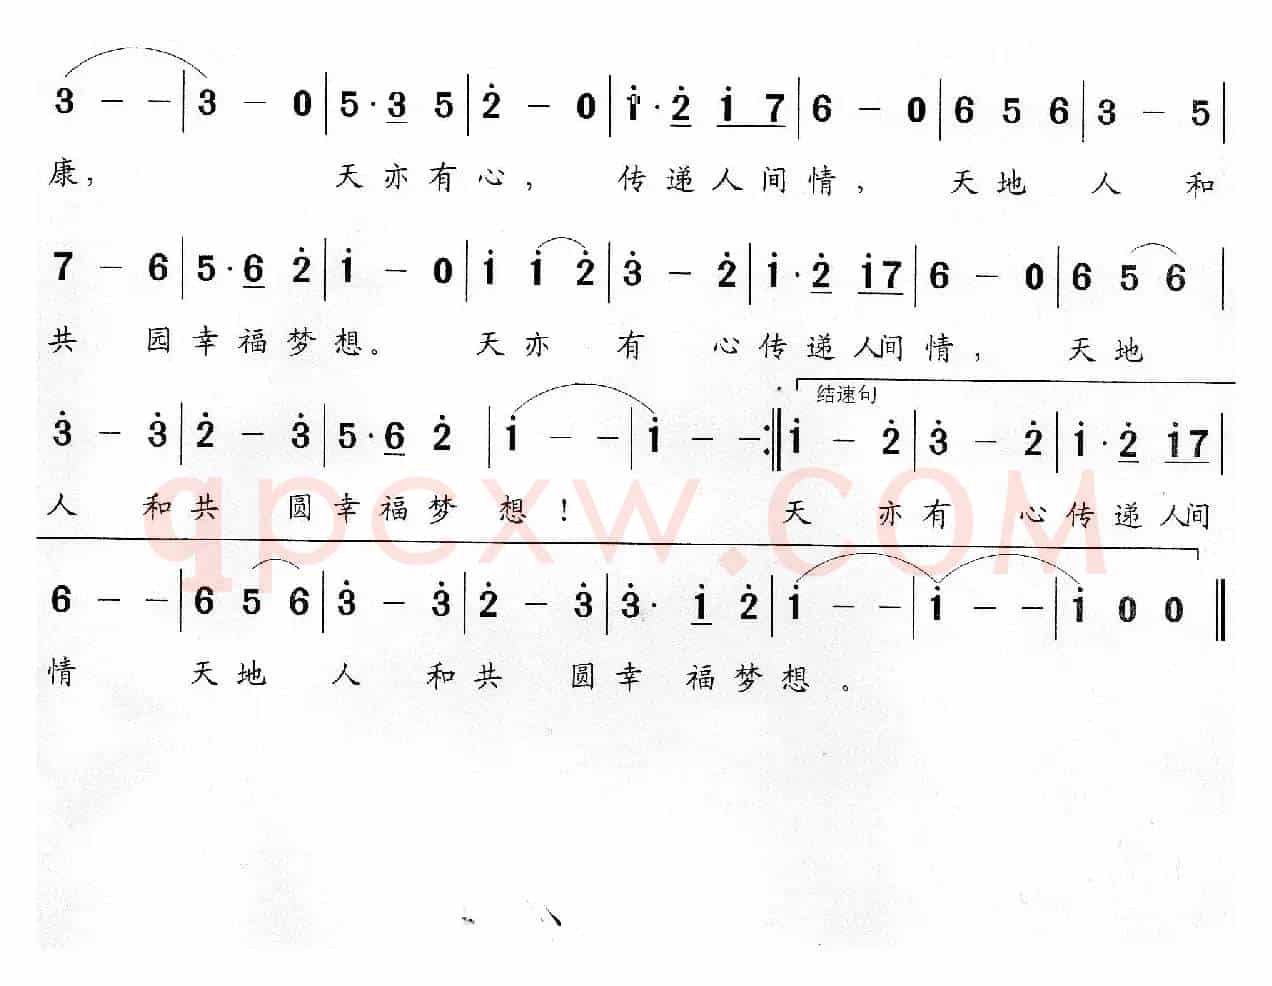 3 － － | 3 － 0 | 5 · 3 5 | 2 － 0 | 1 · 2 1 7 | 6 － 0 | 6 5 6 | 3 － 5 |
康， 天亦有心， 传递人间情， 天地 人 和
7 － 6 | 5 · 6 2 | 1 － 0 | 1 1 2 | 3 － 2 | 1 · 2 1 7 | 6 － 0 | 6 5 6 |
共 园幸福梦想。 天亦 有 心传递人间情， 天地
结速句
3 － 3 | 2 － 3 | 5 · 6 2 | 1 － － | 1 － － － :‖ 1 － 2 | 3 － 2 | 1 · 2 1 7 |
人 和共 圆幸福梦 想！ 天 亦有 心传递人间
qpcxw.COM
6 － － | 6 5 6 | 3 － 3 | 2 － 3 | 3 · 1 2 | 1 － － | 1 － － | 1 0 0 ‖
情 天地 人 和共 圆幸 福梦想。